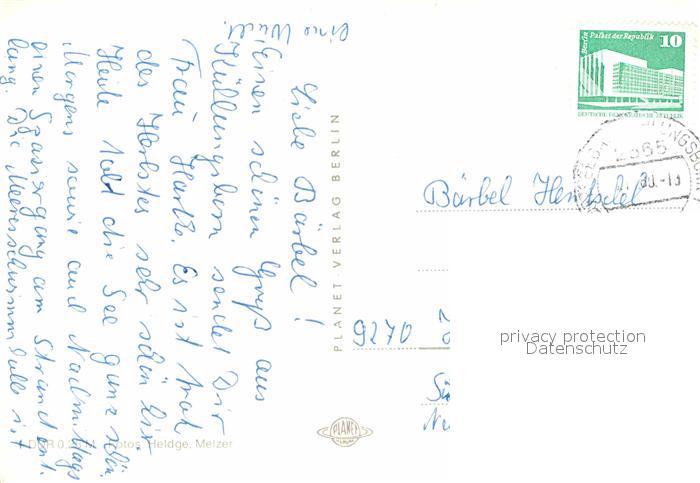 Liebe Bärbel!
Einen schönen Gruß aus
Kühlungsborn sendet Dir
Frau Hartk. Es ist trotz
des Herbstes sehr schön hier.
Heute tobt die See ganz schön.
Morgens sowie auch Nachmittags
einen Spaziergang am Strand ent-
lang. Die Meeresschwimmhalle ist
eine Wucht.
PLANET-VERLAG BERLIN
DDR 0,20 M Fotos: Heldge, Melzer
PLANET
Berlin Palast der Republik
10
DEUTSCHE DEMOKRATISCHE REPUBLIK
2565
80.-19
Bärbel Hentschel
9270
privacy protection
Datenschutz